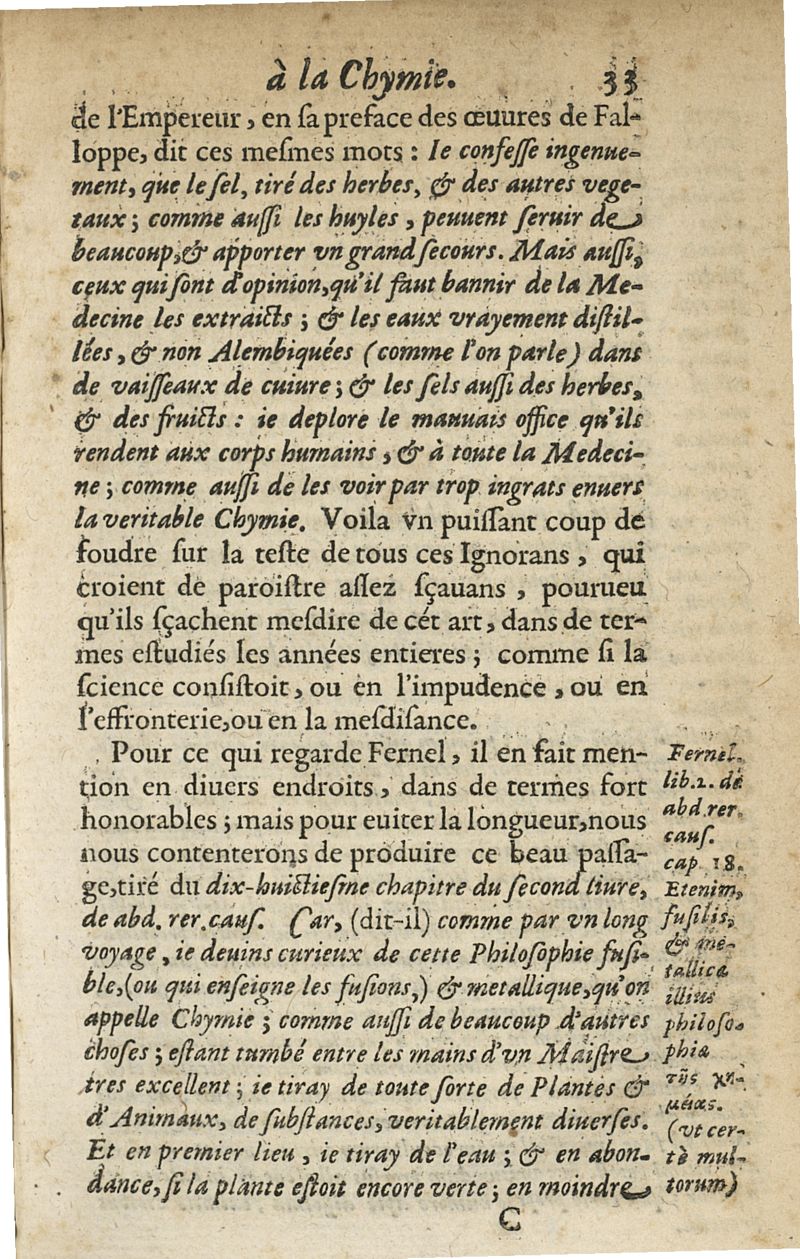 à la Chymie. 33
de l'Empereur, en sa preface des œuures de Fal-
loppe, dit ces mesmes mots : Ie confesse ingenue-
ment, que le sel, tiré des herbes, & des autres vege-
taux ; comme aussi les huyles, peuuent seruir de
beaucoup, & apporter vn grand secours. Mais aussi,
ceux qui sont d'opinion, qu'il faut bannir de la Me-
decine les extraicts ; & les eaux vrayement distil-
lées, & non Alembiquées (comme l'on parle) dans
de vaisseaux de cuiure ; & les sels aussi des herbes,
& des fruicts : ie deplore le mauuais office qu'ils
rendent aux corps humains, & à toute la Medeci-
ne ; comme aussi de les voir par trop ingrats enuers
la veritable Chymie. Voila vn puissant coup de
foudre sur la teste de tous ces Ignorans, qui
croient de paroistre assez sçauans, pourueu
qu'ils sçachent mesdire de cét art, dans de ter-
mes estudiés les années entieres ; comme si la
science consistoit, ou en l'impudence, ou en
l'effronterie, ou en la mesdisance.
Pour ce qui regarde Fernel, il en fait men-
tion en diuers endroits, dans de termes fort
honorables ; mais pour euiter la longueur, nous
nous contenterons de produire ce beau passa-
ge, tiré du dix-huictiesme chapitre du second liure,
de abd. rer. caus. Car, (dit-il) comme par vn long
voyage, ie deuins curieux de cette Philosophie fusi-
ble, (ou qui enseigne les fusions,) & metallique, qu'on
appelle Chymie ; comme aussi de beaucoup d'autres
choses ; estant tumbé entre les mains d'vn Maistre
tres excellent ; ie tiray de toute sorte de Plantes &
d'Animaux, de substances, veritablement diuerses.
Et en premier lieu, ie tiray de l'eau ; & en abon-
dance, si la plante estoit encore verte ; en moindre
C
Fernel.
lib. 2. de
abd. rer.
caus.
cap 18.
Etenim,
fusilis,
& me-
tallicæ
illius
philoso-
phiæ
τῆς χη-
μείας.
(vt cer-
tè mul-
torum)